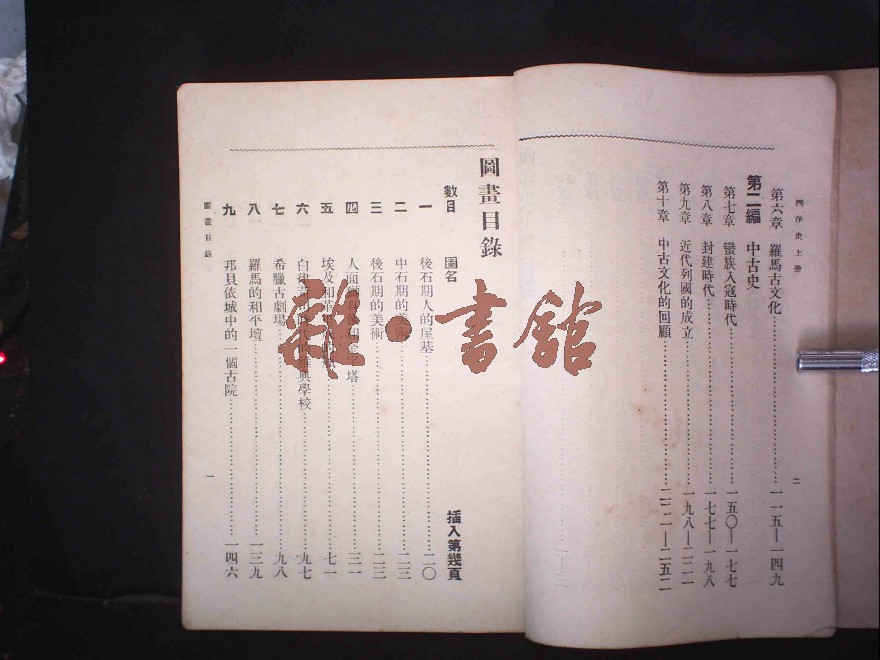 西洋史上冊
二
第六章 羅馬古文化……一一五—一四九
第二編 中古史
第七章 蠻族入寇時代……一五〇—一七七
第八章 封建時代……一七七—一九八
第九章 近代列國的成立……一九八—二二一
第十章 中古文化的回顧……二二一—二五二
圖畫目錄
數目 圖名 插入第幾頁
一 後石期人的屋基……二〇
二 中石期的美術……二三
三 後石期的美術……二三
四 人面獅身像和金字塔……三一
五 埃及和……七一
六 時代的雅典學校……九七
七 希臘古劇場……九八
八 羅馬的和平壇……一三九
九 邦貝依城中的一個古院……一四六
圖畫目錄
一
雜·書館